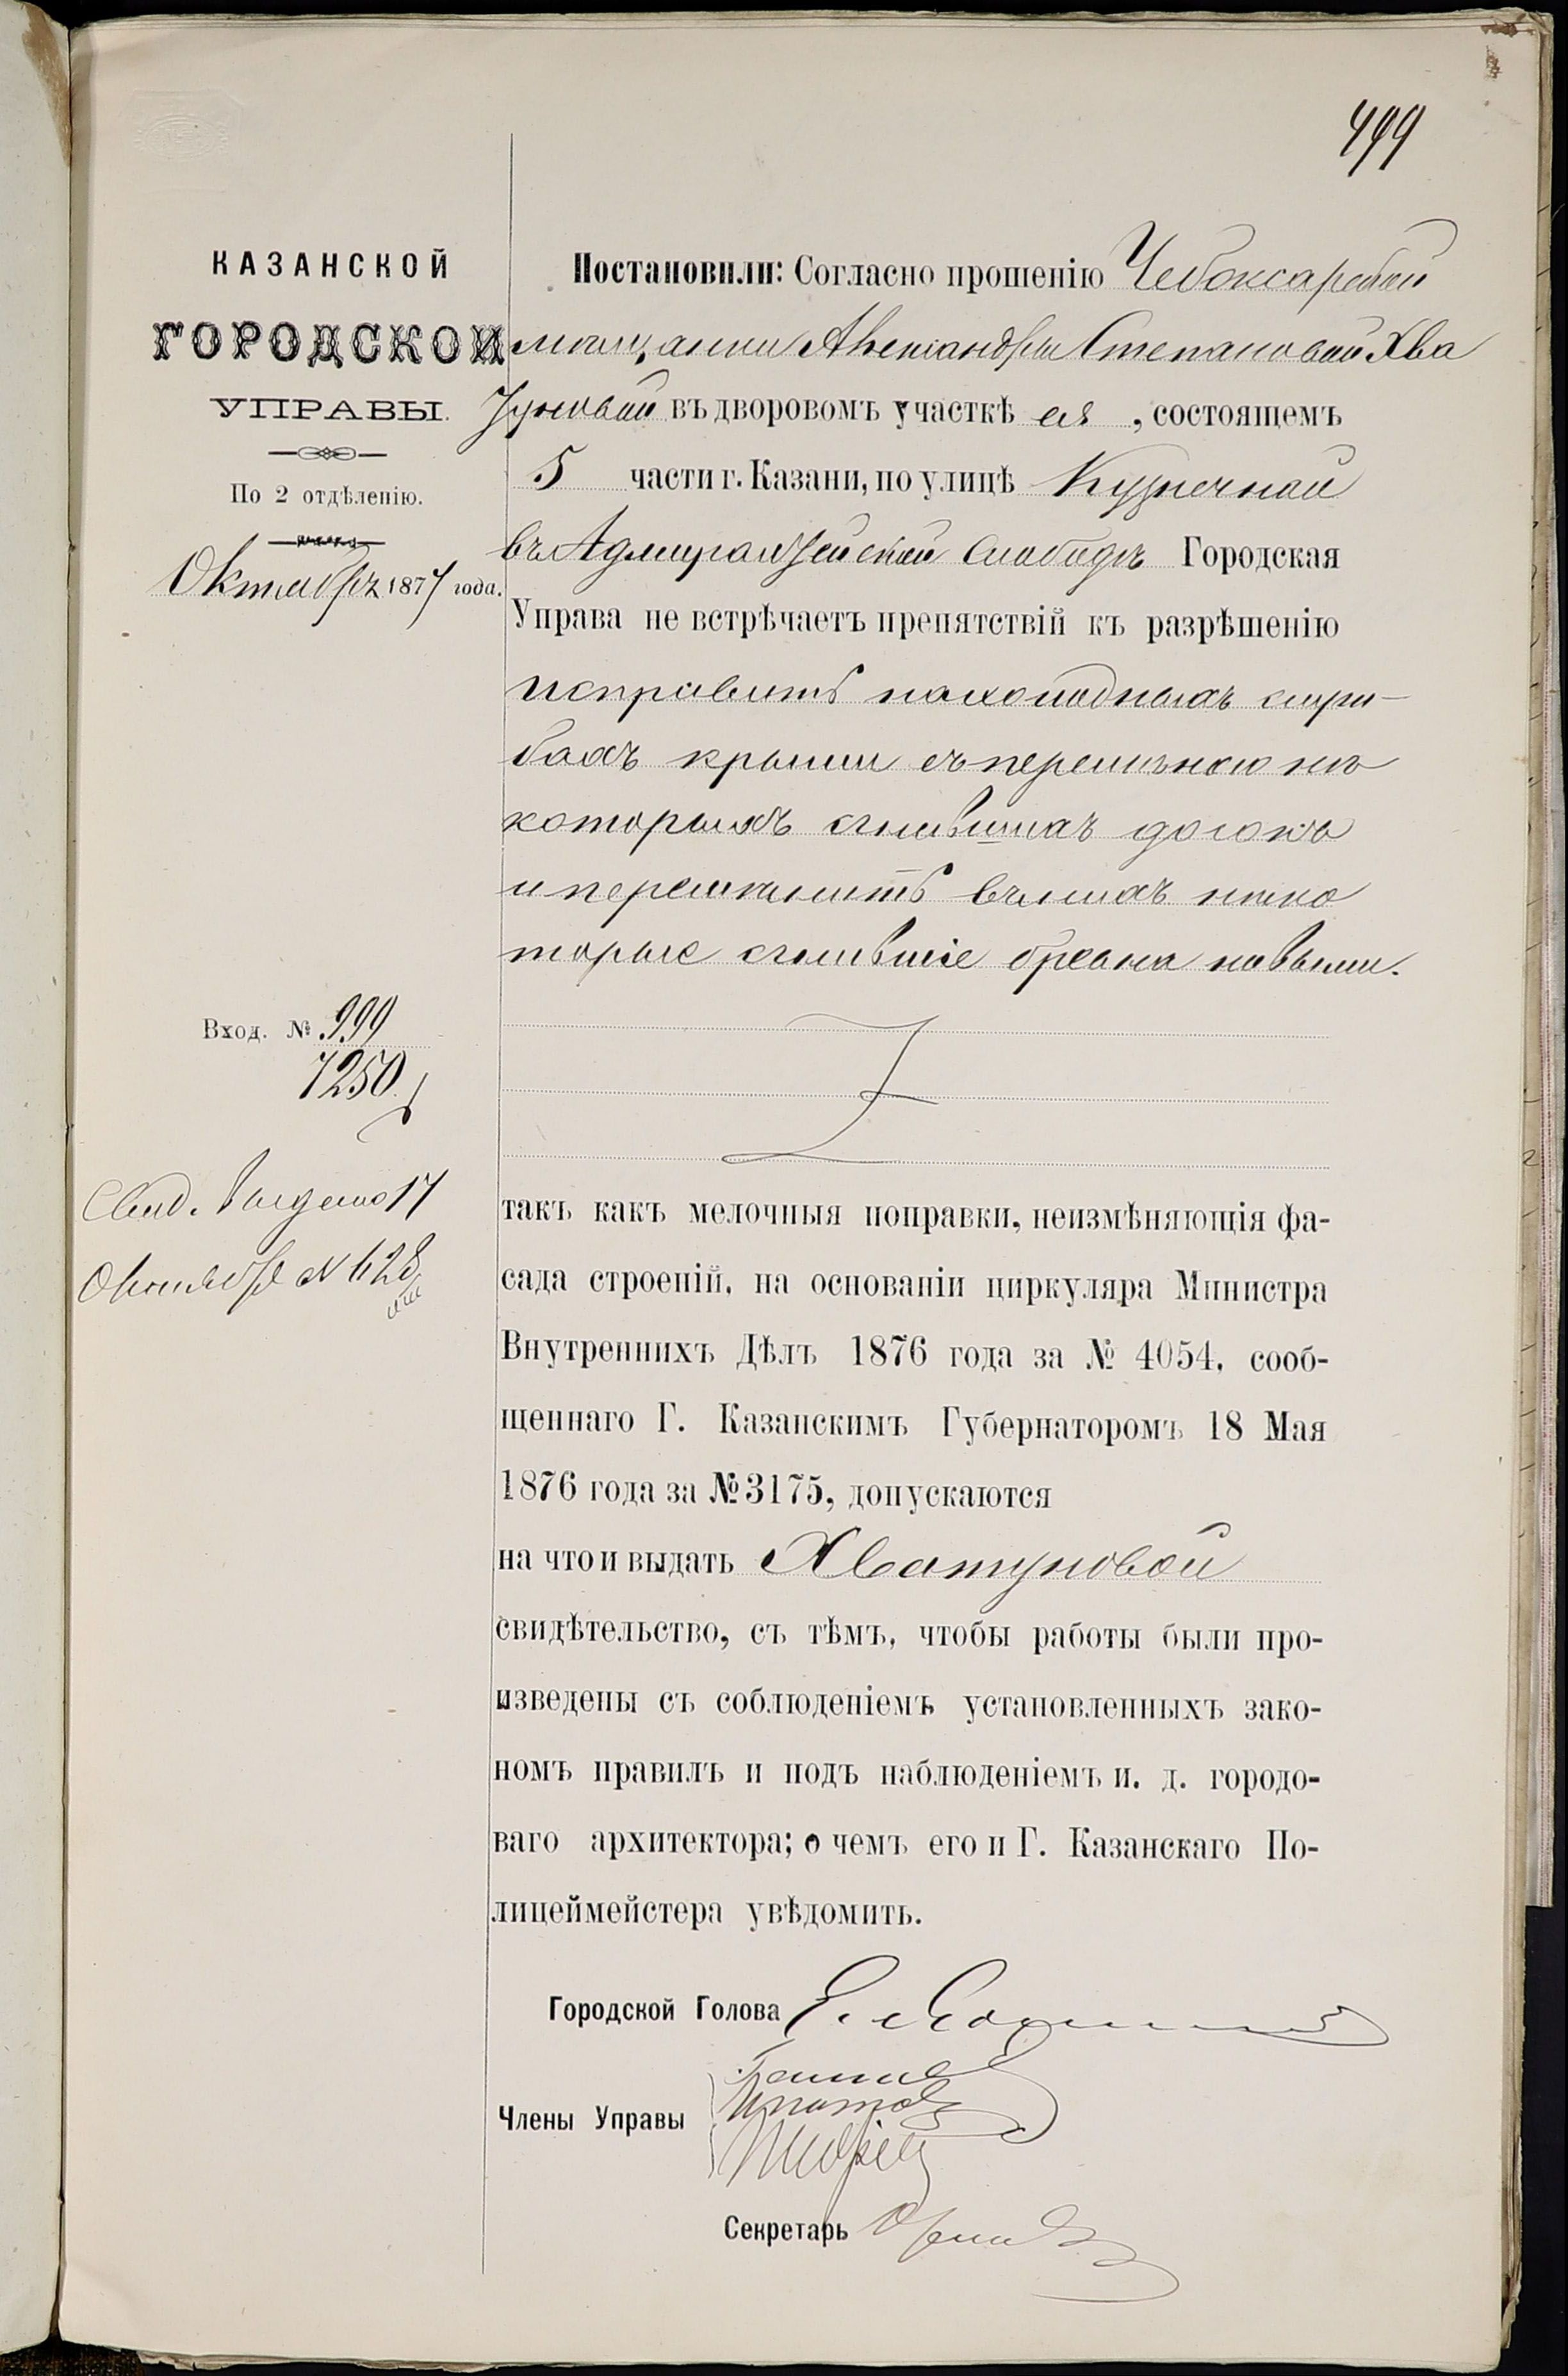 499
КАЗАНСКОЙ
ГОРОДСКОЙ
УПРАВЫ.
По 2 отдѣленію.
Октября 1877 года.
Вход. № 999
7250
Свид. выдано 17
Октября № 628
Постановили: Согласно прошенію Чебоксарской
мѣщанки Александры Степановой Хва
туновой въ дворовомъ участкѣ ея, состоящемъ
5 части г. Казани, по улицѣ Кузнечной
въ Адмиралтейской слободѣ Городская
Управа не встрѣчаетъ препятствій къ разрѣшенію
исправить на холодныхъ служ-
бахъ крыши съ перемѣною нѣ
которыхъ сгнившихъ досокъ
и перемѣнить въ нихъ нѣко
торые сгнившіе бревна новыми.
такъ какъ мелочныя поправки, неизмѣняющія фа-
сада строеній, на основаніи циркуляра Министра
Внутреннихъ Дѣлъ 1876 года за № 4054, сооб-
щеннаго Г. Казанскимъ Губернаторомъ 18 Мая
1876 года за № 3175, допускаются
на что и выдать Хватуновой
свидѣтельство, съ тѣмъ, чтобы работы были про-
изведены съ соблюденіемъ установленныхъ зако-
номъ правилъ и подъ наблюденіемъ и. д. городо-
ваго архитектора; о чемъ его и Г. Казанскаго По-
лицеймейстера увѣдомить.
Городской Голова
Члены Управы
Ипатовъ
Секретарь